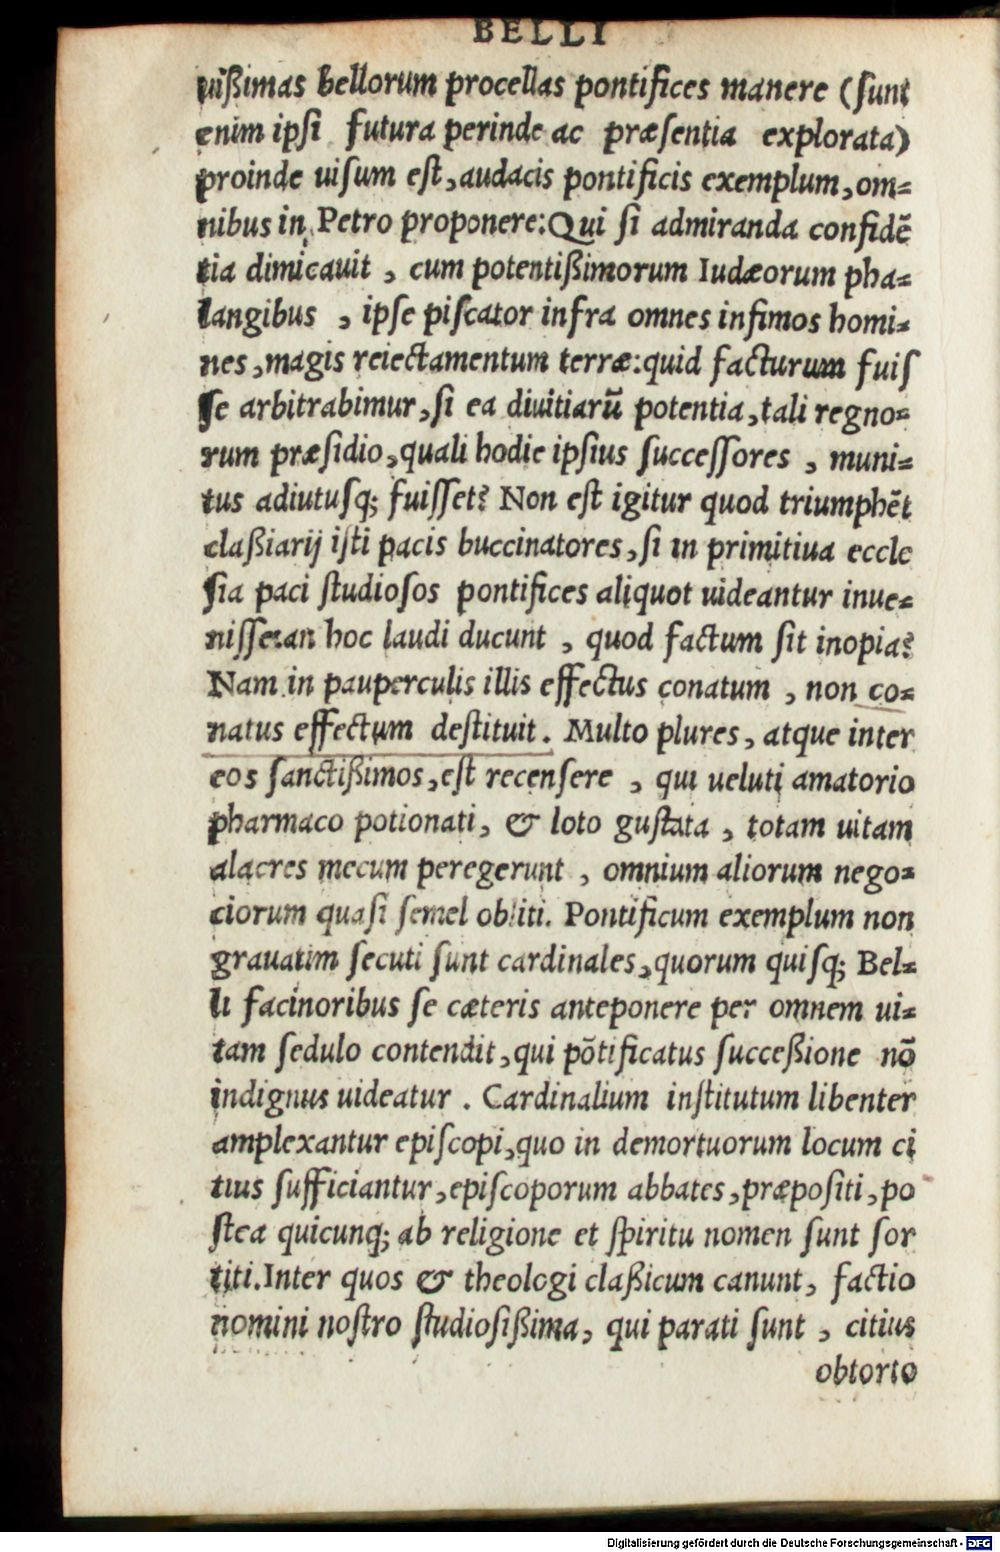 BELLI
uißimas bellorum procellas pontifices manere (ſunt
enim ipſi futura perinde ac præſentia explorata)
proinde uiſum eſt, audacis pontificis exemplum, om=
nibus in Petro proponere: Qui ſi admiranda confidē
tia dimicauit , cum potentißimorum Iudæorum pha=
langibus , ipſe piſcator infra omnes infimos homi=
nes, magis reiectamentum terræ: quid facturum fuiſ
ſe arbitrabimur, ſi ea diuitiarū potentia, tali regno=
rum præſidio, quali hodie ipſius ſucceſſores , muni=
tus adiutuſq; fuiſſet? Non eſt igitur quod triumphēt
claßiarij iſti pacis buccinatores, ſi in primitiua eccle
ſia paci ſtudioſos pontifices aliquot uideantur inue=
niſſe: an hoc laudi ducunt , quod factum ſit inopia?
Nam in pauperculis illis effectus conatum , non co=
natus effectum deſtituit. Multo plures, atque inter
eos ſanctißimos, eſt recenſere , qui ueluti amatorio
pharmaco potionati, & loto guſtata , totam uitam
alacres mecum peregerunt , omnium aliorum nego=
ciorum quaſi ſemel obliti. Pontificum exemplum non
grauatim ſecuti ſunt cardinales, quorum quiſq; Bel=
li facinoribus ſe cæteris anteponere per omnem ui=
tam ſedulo contendit, qui pōtificatus ſucceßione nō
indignus uideatur . Cardinalium inſtitutum libenter
amplexantur epiſcopi, quo in demortuorum locum ci
tius ſufficiantur, epiſcoporum abbates, præpoſiti, po
ſtea quicunq; ab religione et ſpiritu nomen ſunt ſor
titi. Inter quos & theologi claßicum canunt, factio
nomini noſtro ſtudioſißima, qui parati ſunt , citius
obtorto
Digitalisierung gefördert durch die Deutsche Forschungsgemeinschaft - DFG